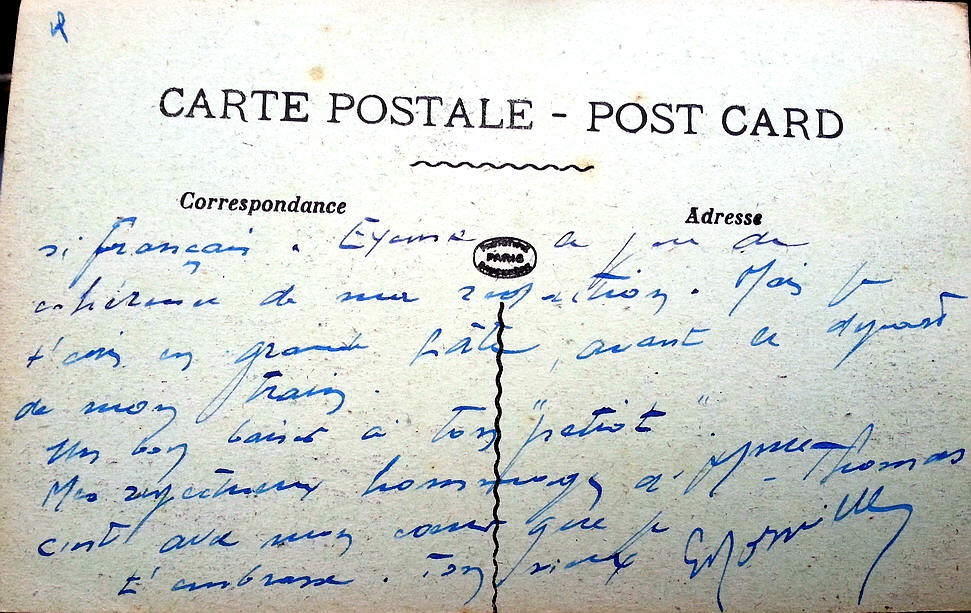 CARTE POSTALE - POST CARD
Correspondance
Adresse
PARIS
si français. Excuse le peu de
cohérence de ma rédaction. Mais je
t'écris en grande hâte, avant le départ
de mon train.
Un bon baiser à ton "petiot".
Mes respectueux hommages à Mme Thomas
c'est avec mon cœur que je
t'embrasse. Ton vieux